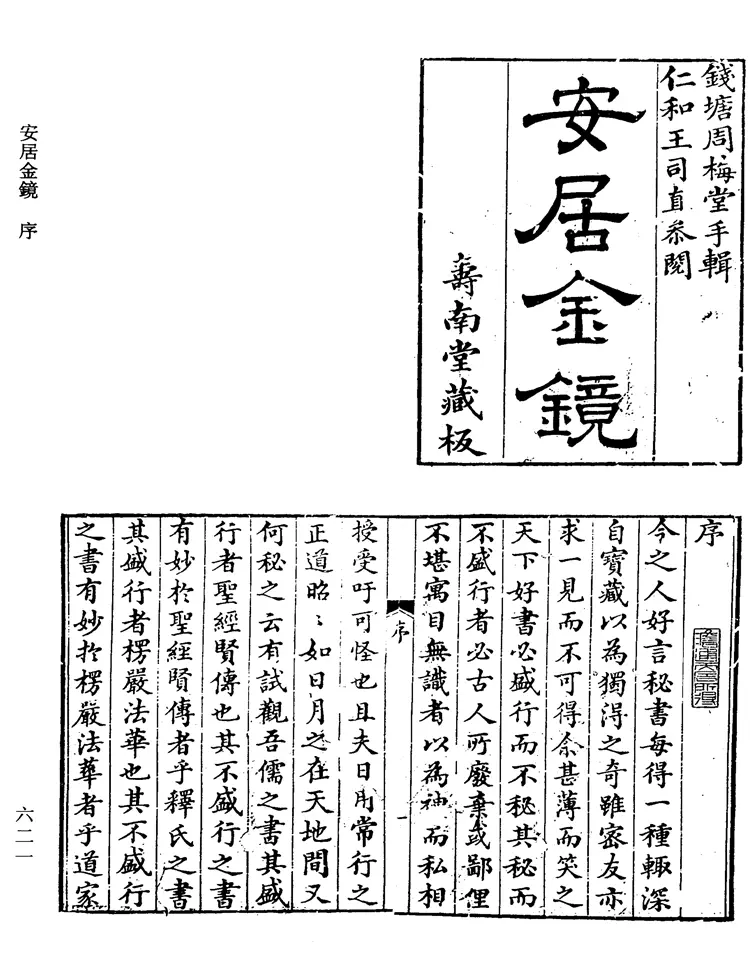 錢塘周梅堂手輯
仁和王司直叅閱
安居金鏡
壽南堂藏板
安居金鏡 序
六二一
序
今之人好言秘書每得一種輙深
自寶藏以為獨得之奇雖密友亦
求一見而不可得余甚薄而笑之
天下好書必盛行而不秘其秘而
不盛行者必古人所廢棄或鄙俚
不堪寓目無識者以為神而私相
序
一
授受吁可怪也且夫日用常行之
正道昭〻如日月之在天地間又
何秘之云有試觀吾儒之書其盛
行者聖經賢傳也其不盛行之書
有妙於聖經賢傳者乎釋氏之書
其盛行者楞嚴法華也其不盛行
之書有妙於楞嚴法華者乎道家